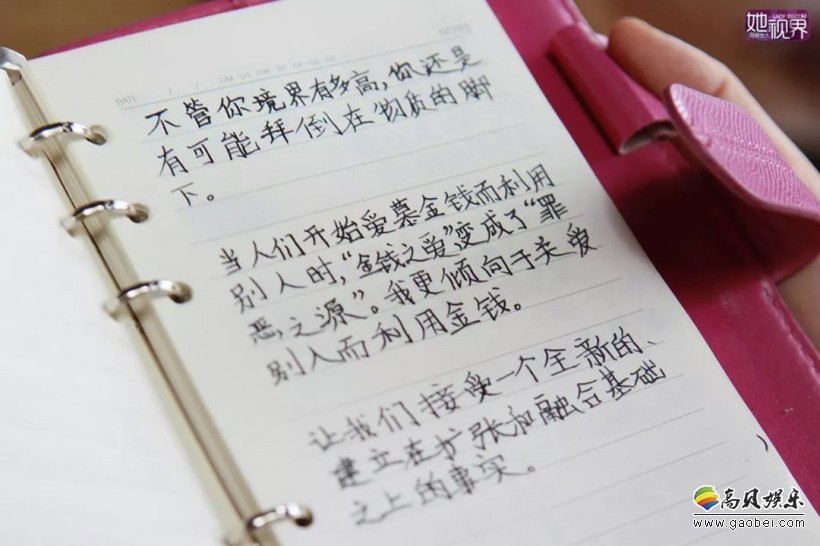 LADY.YOI.COM
她视界
DATE / /
不管你境界有多高,你还是
有可能拜倒在物质的脚
下。
当人们开始爱慕金钱而利用
别人时,“金钱之爱”变成了“罪
恶之源”。我更倾向于关爱
别人而利用金钱。
让我们接受一个全新的、
建立在扩张和融合基础
之上的事实。
高贝娱乐
www.gaobei.com